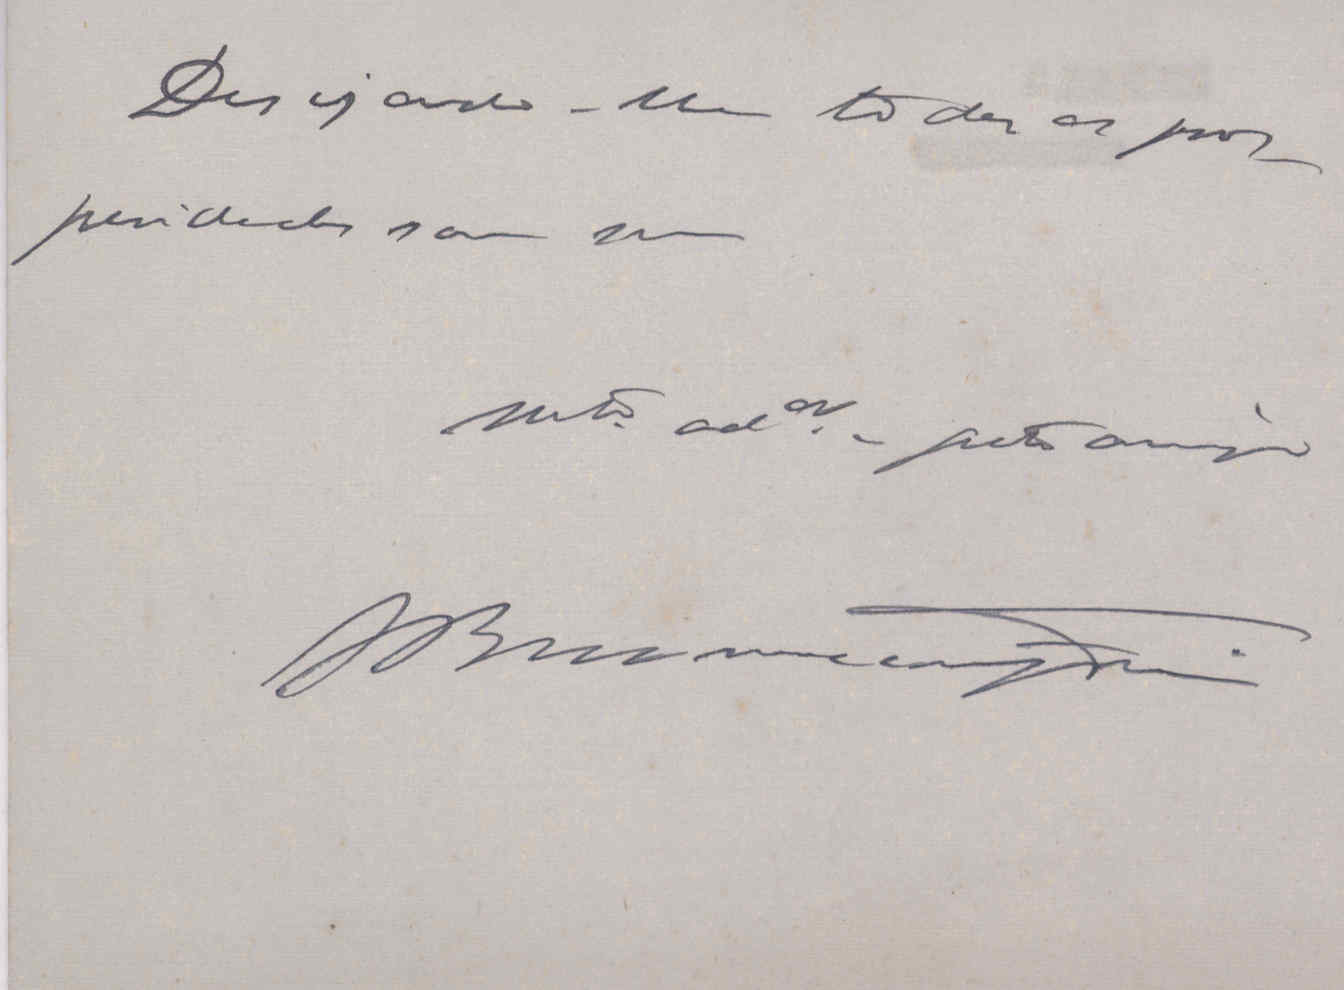 Desejando-lhe todas as pros
peridades sou seu
mto. ador. e grato amigo